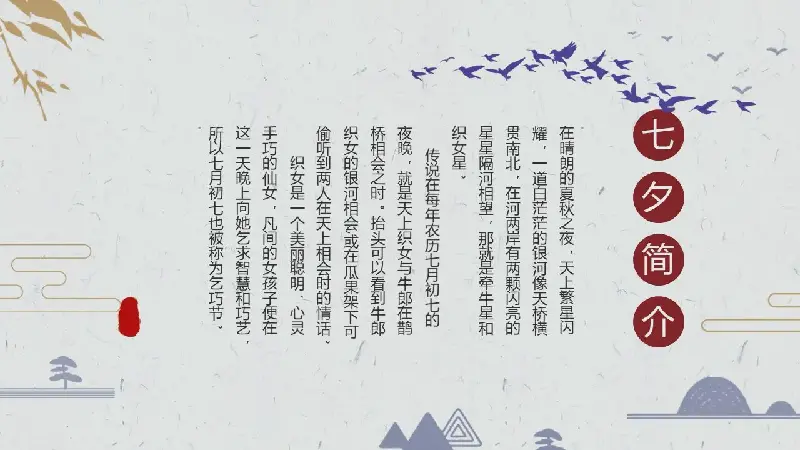 七夕简介
在晴朗的夏秋之夜，天上繁星闪
耀，一道白茫茫的银河像天桥横
贯南北，在河两岸有两颗闪亮的
星星隔河相望，那就是牵牛星和
织女星。
传说在每年农历七月初七的
夜晚，就是天上织女与牛郎在鹊
桥相会之时。抬头可以看到牛郎
织女的银河相会或在瓜果架下可
偷听到两人在天上相会时的情话。
织女是一个美丽聪明，心灵
手巧的仙女，凡间的女孩子便在
这一天晚上向她乞求智慧和巧艺，
所以七月初七也被称为乞巧节。